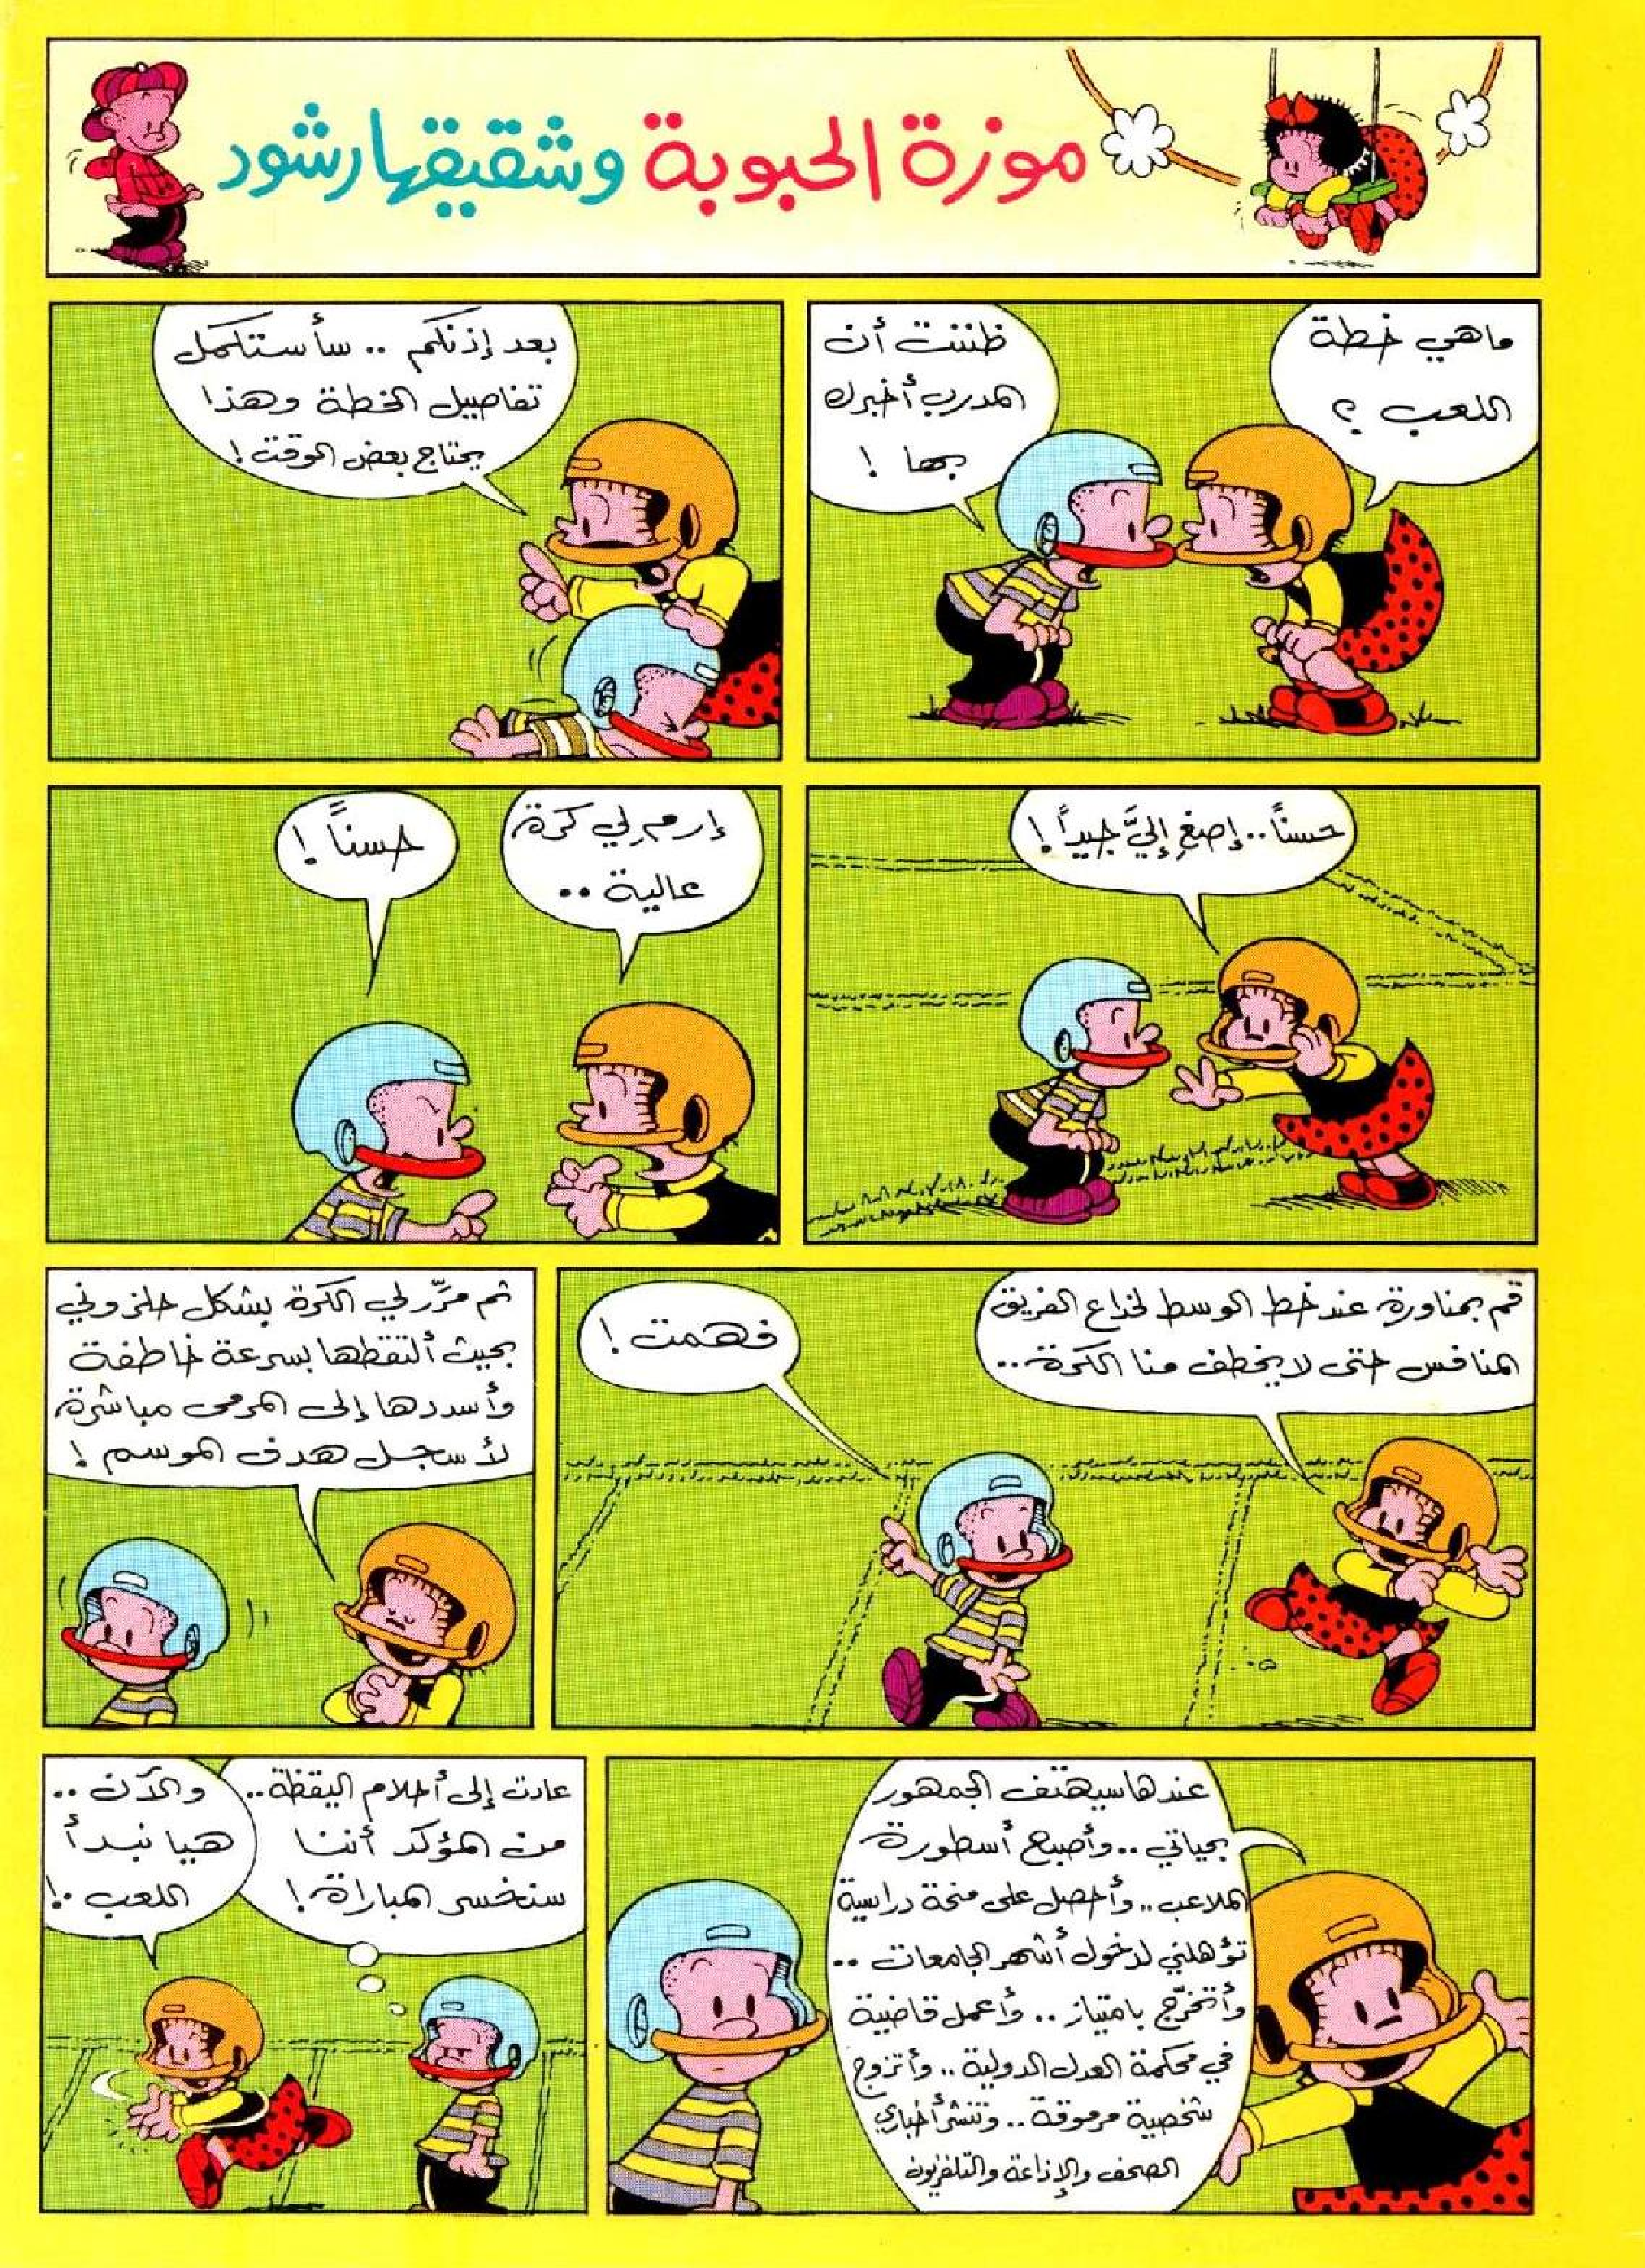 موزة الحبوبة وشقيقها رشود
ما هي خطة
اللعب ؟
ظننت أن
المدرب أخبرك
بها !
بعد إذنكم .. سأستكمل
تفاصيل الخطة وهذا
يحتاج بعض الوقت !
حسناً .. إصغِ إليَّ جيداً !
إرمِ لي كرة
عالية ..
حسناً !
قم بمناورة عند خط الوسط لخداع الفريق
المنافس حتى لا يخطف منا الكرة ..
فهمت !
ثم مرّر لي الكرة بشكل حلزوني
بحيث ألتقطها بسرعة خاطفة
وأسددها إلى المرمى مباشرة
لأسجل هدف الموسم !
عندها سيهتف الجمهور
بحياتي .. وأصبح أسطورة
الملاعب .. وأحصل على منحة دراسية
تؤهلني لدخول أشهر الجامعات ..
وأتخرّج بامتياز .. وأعمل قاضية
في محكمة العدل الدولية .. وأتزوج
شخصية مرموقة .. وتنشر أخباري
الصحف والإذاعة والتلفزيون
عادت إلى أحلام اليقظة ..
من المؤكد أننا
سنخسر المباراة !
والآن ..
هيا نبدأ
اللعب .!